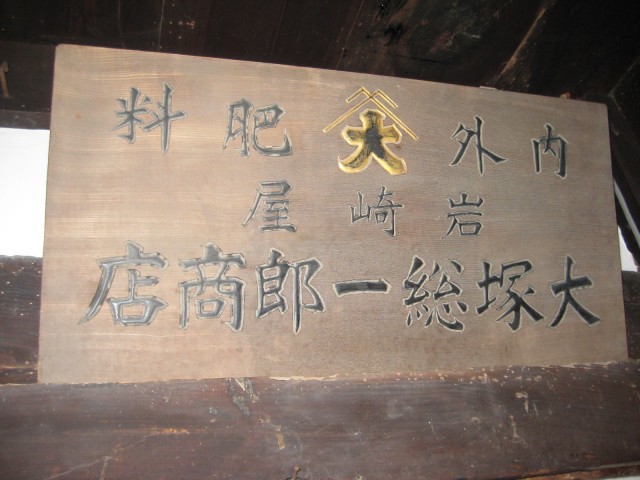 内外大肥料
岩崎屋
大塚総一郎商店